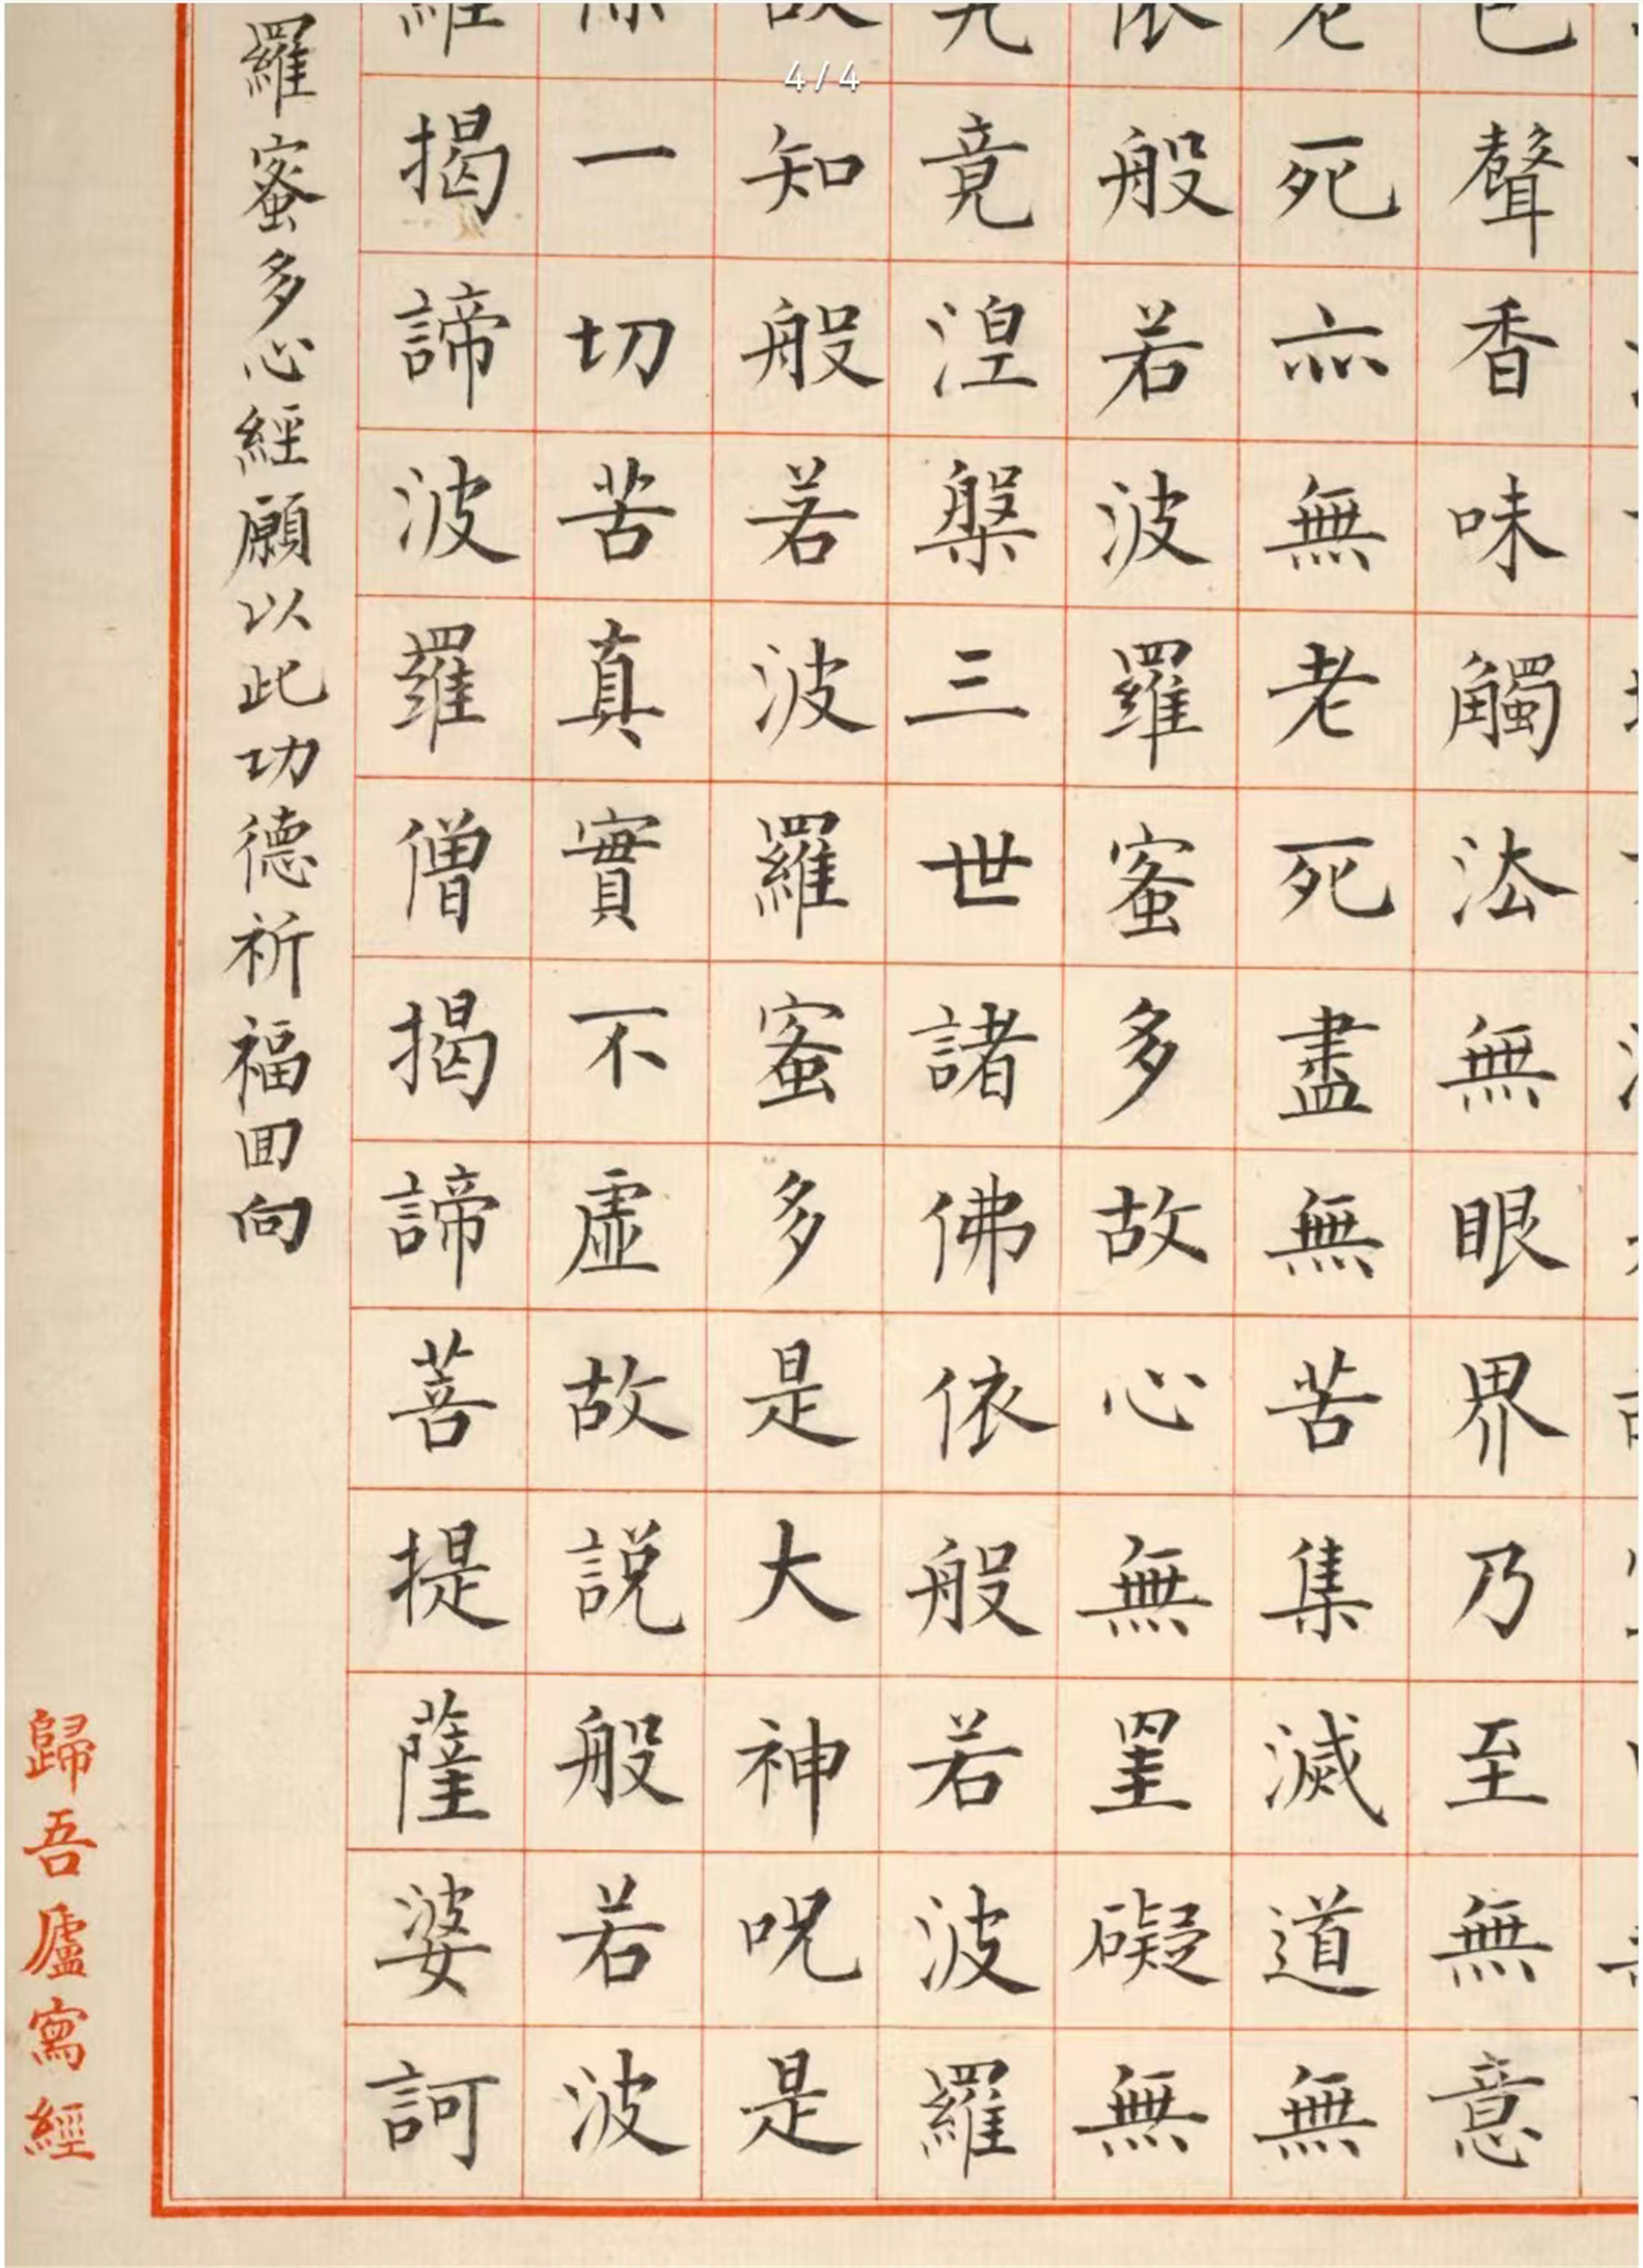 4/4
聲香味觸法無眼界乃至無意
死亦無老死盡無苦集滅道無
般若波羅蜜多故心無罣礙無
竟涅槃三世諸佛依般若波羅
知般若波羅蜜多是大神呪是
一切苦真實不虛故説般若波
揭諦波羅僧揭諦菩提薩婆訶
羅蜜多心經願以此功德祈福回向
歸吾廬寫經